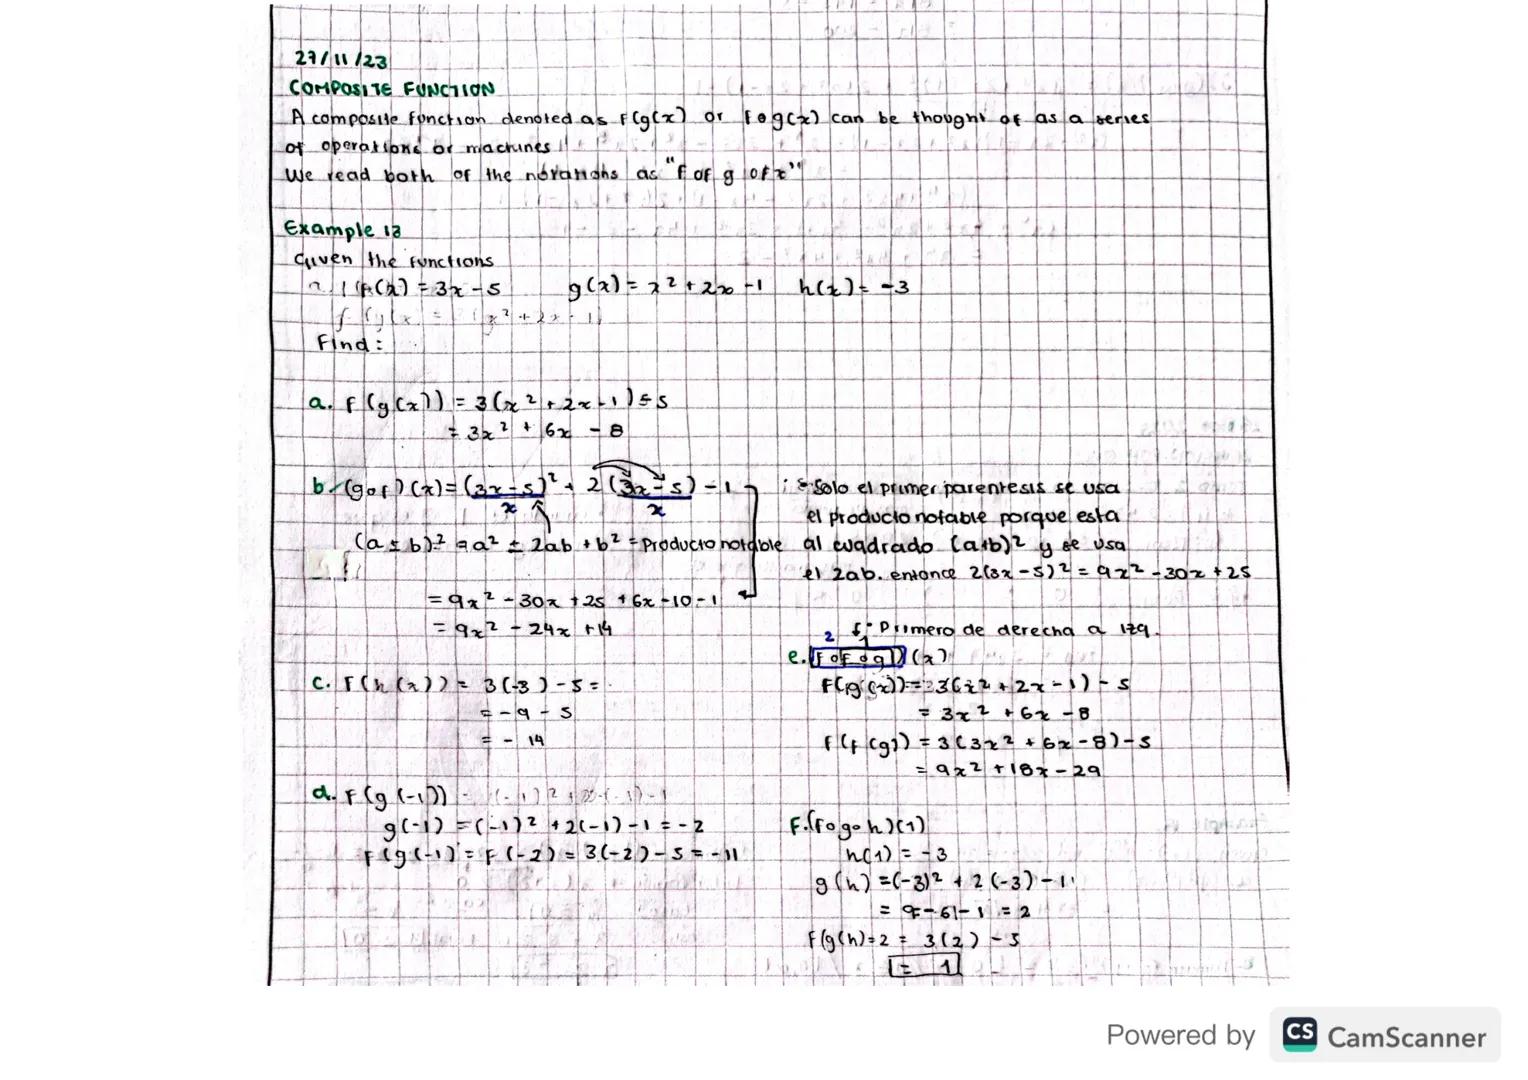 27/11/23
COMPOSITE FUNCTION
A composite function denoted as f(g(x) or fog(x) can be thought of as a series
of operations or machines
We read both of the notations as "f of g of x"
Example 13
Given the functions
f(x) = 3x - 5 g(x) = x² + 2x - 1 h(x) = -3
Find:
a. f(g(x)) = 3(x² + 2x - 1) - 5
= 3x² + 6x - 8
b. (gof)(x) = (3x - 5)² + 2(3x - 5) - 1
x x
(a ± b)² = a² ± 2ab + b² = Producto notable
= 9x² - 30x + 25 + 6x - 10 - 1
= 9x² - 24x + 14
c. f(h(x)) = 3(-3) - 5 =
= -9 - 5
= - 14
d. f(g(-1))
g(-1) = (-1)² + 2(-1) - 1 = -2
f(g(-1) = f(-2) = 3(-2) - 5 = -11
Solo el primer parentesis se usa
el producto notable porque esta
al cuadrado (a+b)² y se usa
el 2ab. entonce 2(3x - 5)² = 9x² - 30x + 25
2 1 Primero de derecha a izq.
e. (fofog)(x)
f(g(x)) = 3(x² + 2x - 1) - 5
= 3x² + 6x - 8
f(f(g)) = 3(3x² + 6x - 8) - 5
= 9x² + 18x - 29
F. (fogoh)(1)
h(1) = -3
g(h) = (-3)² + 2(-3) - 1
= 9 - 6 - 1 = 2
f(g(h) = 2 = 3(2) - 5
= 1
Powered by CS CamScanner